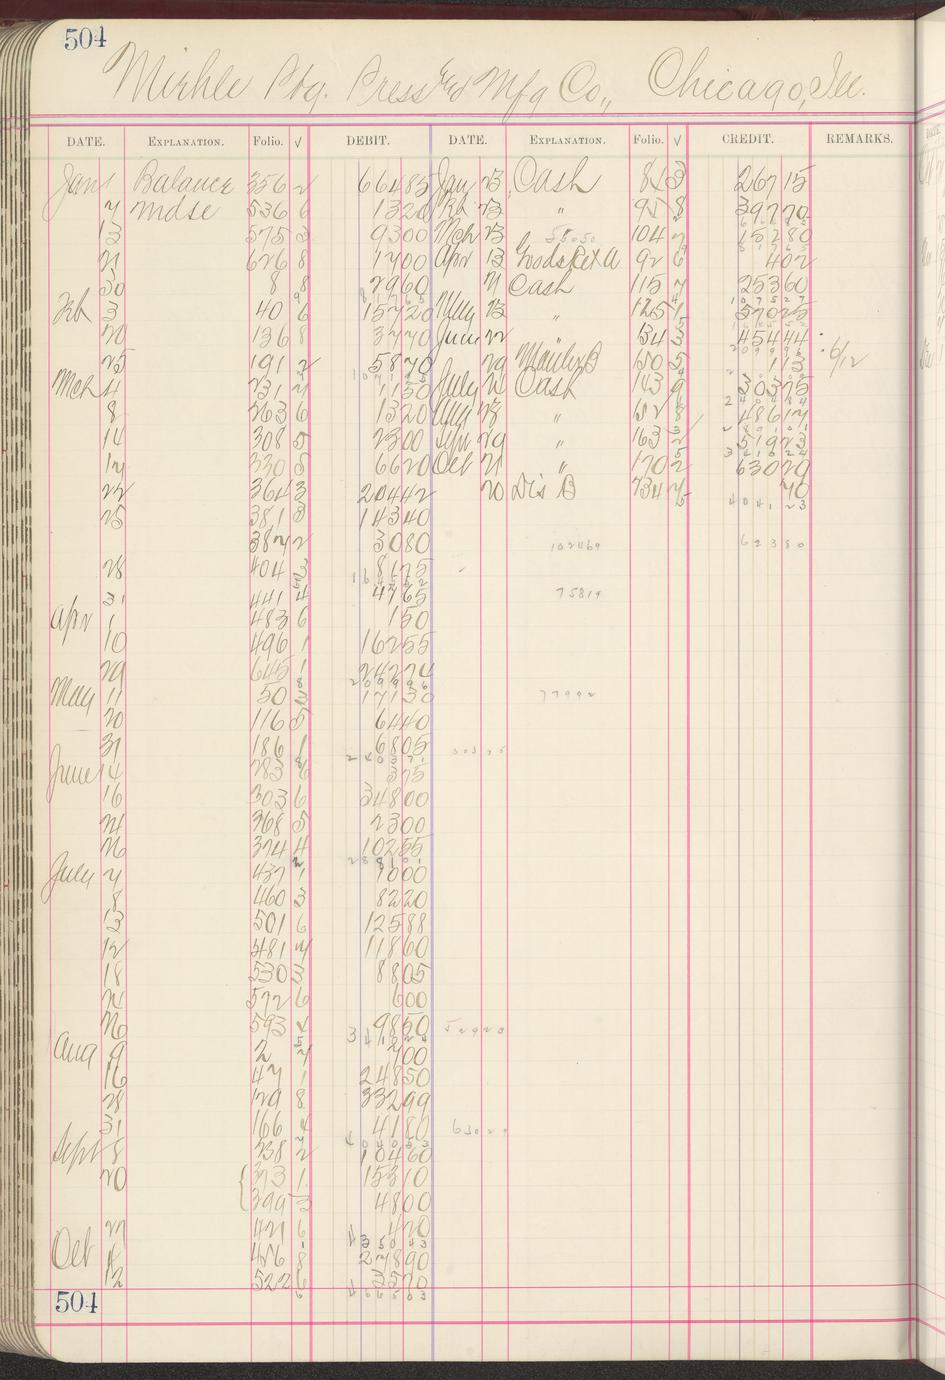 504
Miehle Ptg. Press and Mfg Co., Chicago, Ill.
DATE. EXPLANATION. Folio. √ DEBIT. DATE. EXPLANATION. Folio. √ CREDIT. REMARKS.
Jan 1 Balance 356 2 66485 Jan 23 Cash 81 3 26715
7 Mdse 536 6 1320 Feb 23 " 95 8 39770
13 575 3 9300 Mch 23 58050 104 7 15280
21 626 8 1700 Apr 13 Goods Ret A 92 6 402
30 8 8 2960 21 Cash 115 7 25360
Feb 3 40 6 15720 May 23 " 125 1 57025
20 136 8 3770 June 22 " 134 3 45444
25 191 2 5870 29 150 5 113 6/12
Mch 4 231 7 1150 July 21 Cash 143 9 30375
8 263 6 1320 Aug 23 " 152 8 48617
14 308 5 2300 Sept 29 " 163 2 51923
17 330 5 6620 Oct 21 " 170 2 63029
22 364 3 20442 20 Dis B 734 7 70
25 381 3 14340 404123
387 2 3080 102469 62380
28 404 3 8175
31 441 4 4765 75819
Apr 1 483 6 150
10 496 1 16255
29 645 1 24274
209996
May 11 50 3 17130 77992
20 116 5 6440
31 186 1 6805 30375
240371
June 14 283 6 375
16 303 6 34800
24 368 5 2300
26 374 4 10255
288101
July 7 437 1 1000
8 460 3 8220
13 501 6 12588
12 481 7 11860
18 530 3 8805
24 572 6 600
26 593 4 9850 52923
341024
Aug 9 2 7 700
16 47 1 24850
28 129 8 33299
31 166 4 4180 63029
404053
Sept 8 238 2 10460
20 373 1 15310
399 3 4800
27 421 6 420
435043
Oct 4 456 8 27890
12 522 6 3570
466503
504